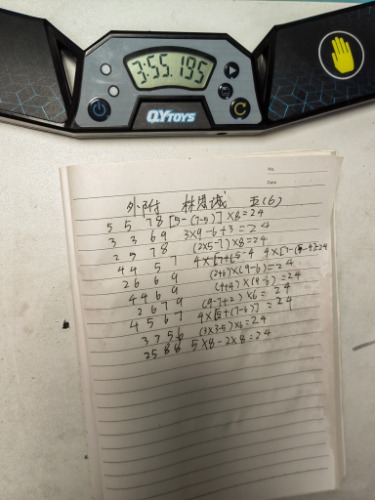 3:55.195
QYTOYS
No.
Date
外附 林思诚 五(6)
5 5 7 8 [5-(7-5)]×8=24
3 3 6 9 3×9-6+3=24
2 5 7 8 (2×5-7)×8=24
4 4 5 7
2 6 6 9 (2+6)×(9-6)=24
4 4 6 9 (4+4)×(9-6)=24
2 6 7 9 (9-7+2)×6=24
4 5 6 7 4×[5+(7-6)]=24
3 3 5 6 (3×3-5)×6=24
2 5 8 8 5×8-2×8=24